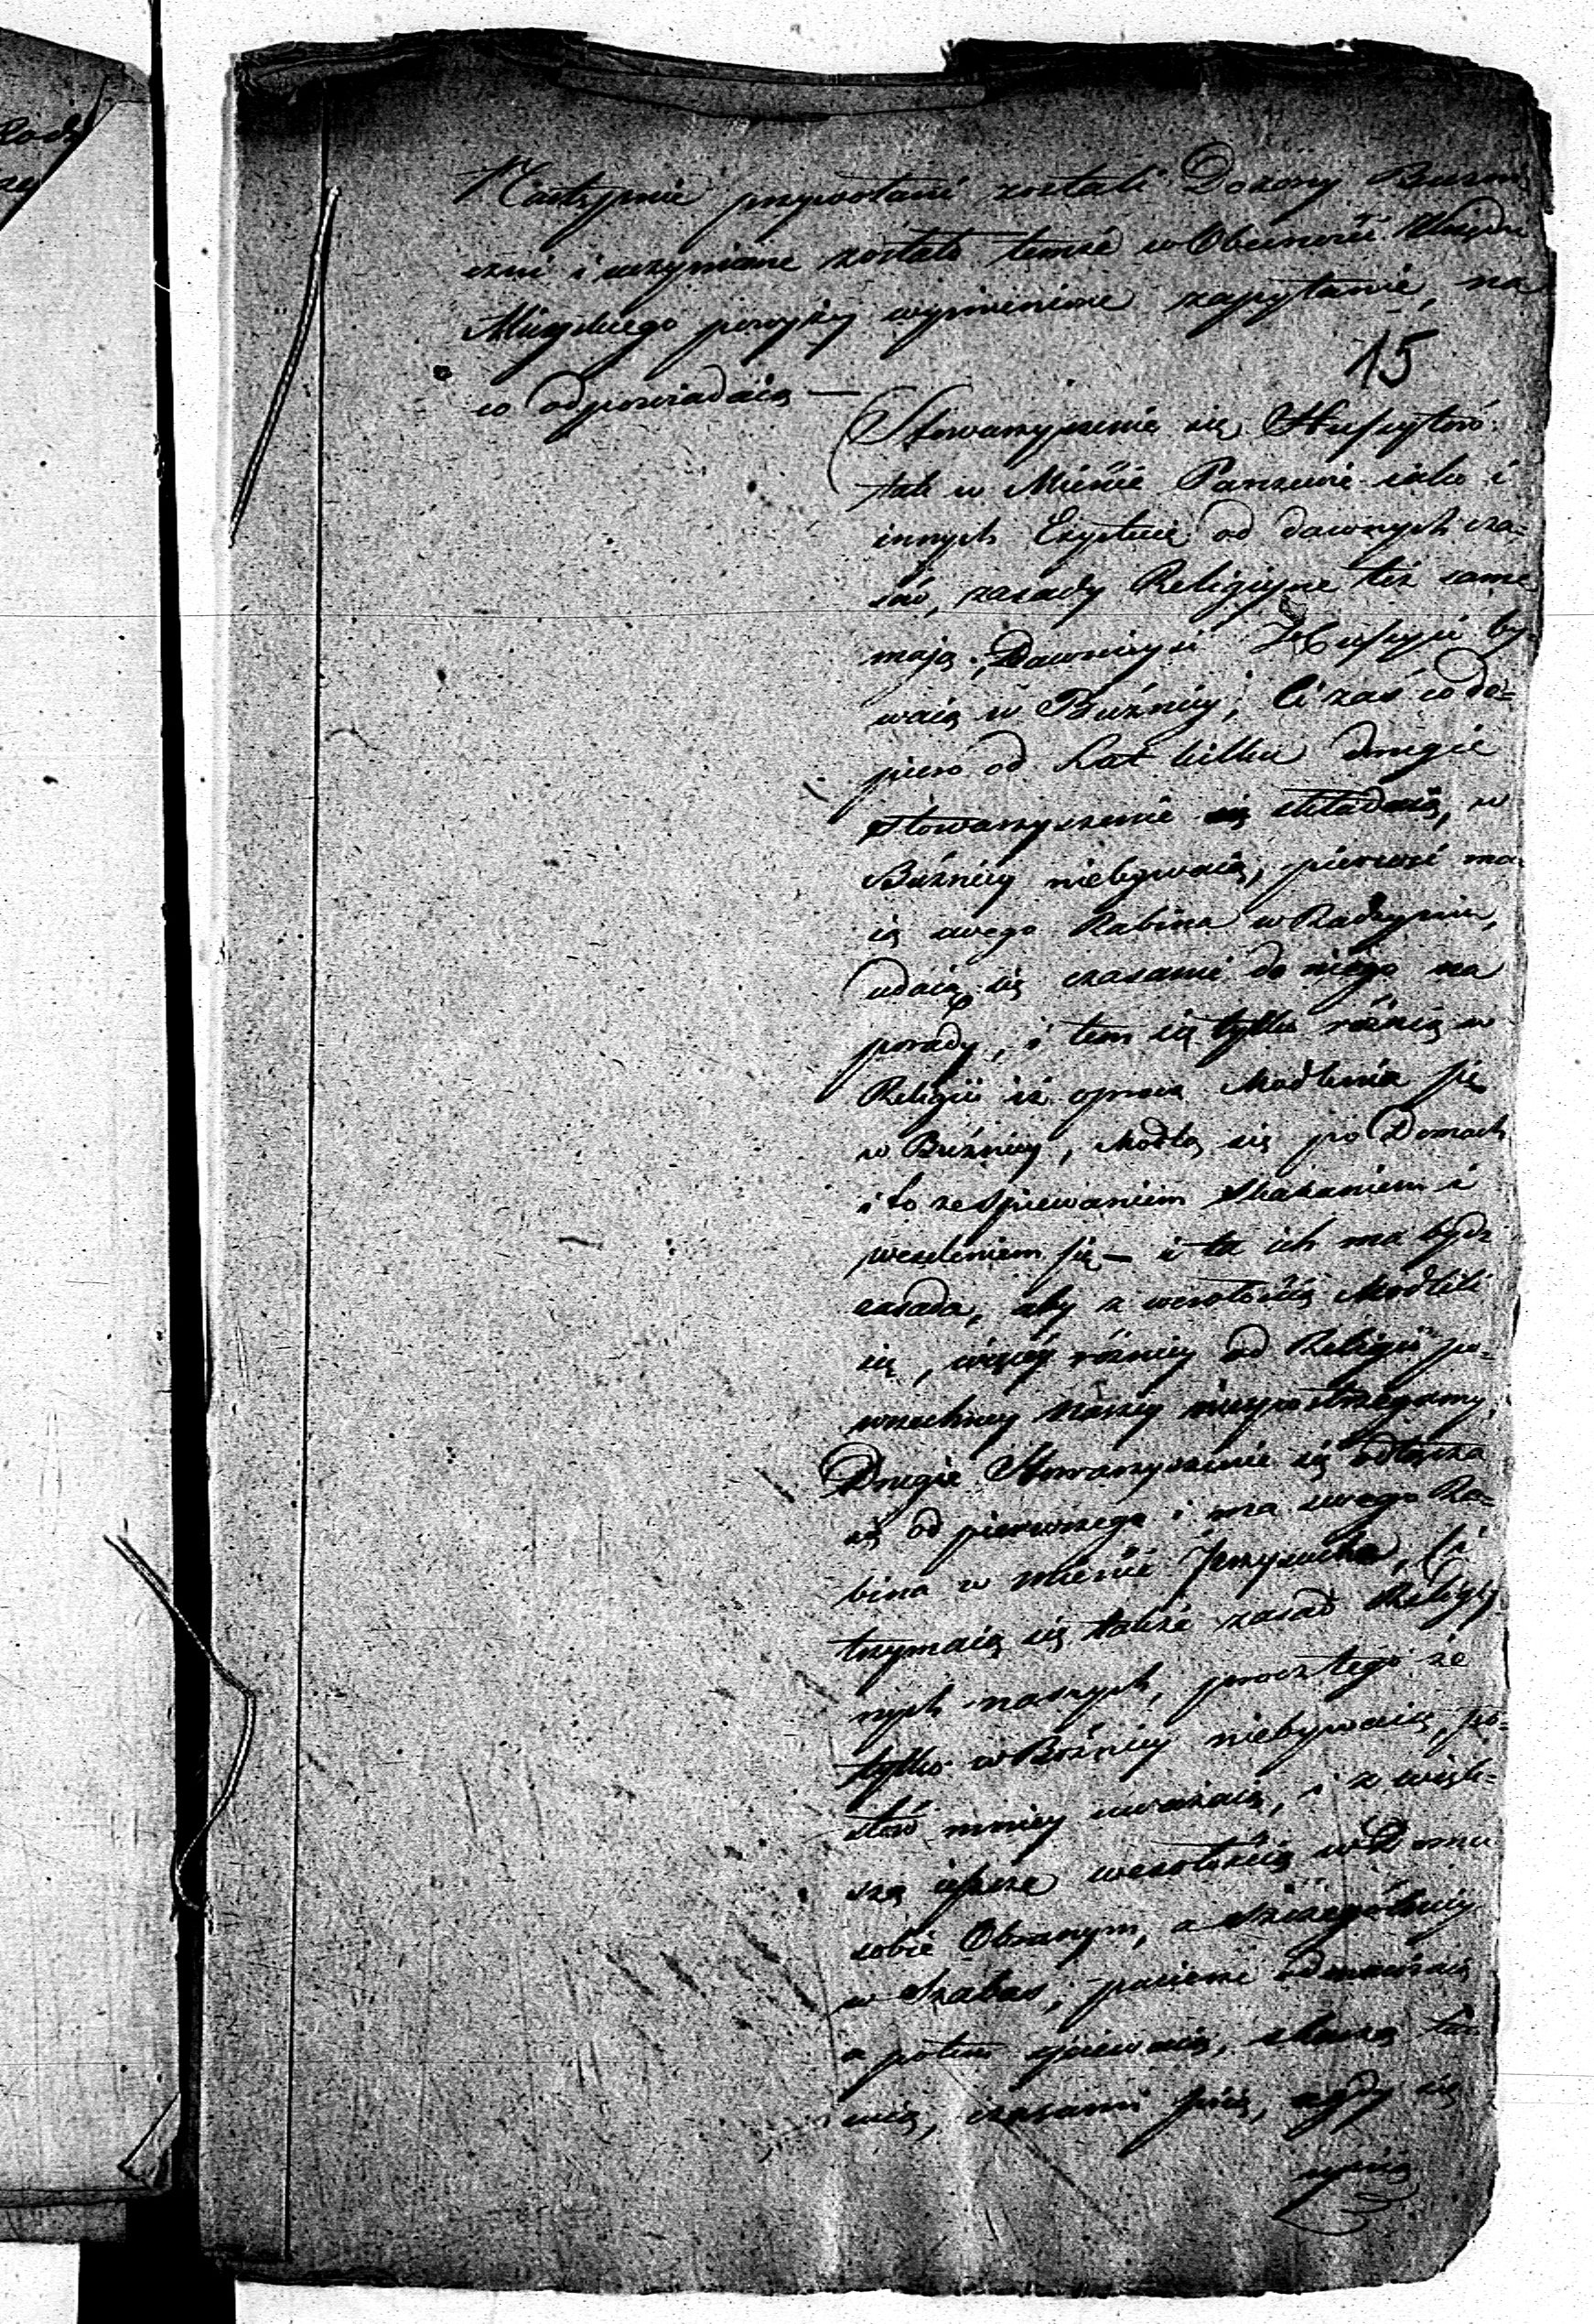 Następnie przywołani zostali Dozory Bużni
czni i uczynione zostało temże w Obecności Urzędu
Mieyskiego powyżey wymienione zapytanie, na
15
co odpowiadaią —
Stowarzyszenie się Hussytów
tak w Mieście Parczewie iako i
innych Exystuie od dawnych cza-
sów, zasady Religiyne też same
mają. Dawnieysi Hussyci by-
waią w Bużnicy, Ci zaś co do-
piero od Lat kilku drugie
stowarzyszenie składaią, w
Bużnicy niebywaią, pierwsi ma-
ią swego Rabina w Radzyniu,
udaią się czasami do niego na
porady, i tem się tylko różnią w
Religii iż oprócz Modlenia się
w Bużnicy, Modlą się po Domach
i to ze Spiewaniem Skakaniem i
weseleniem się — i ta ich ma bydź
zasada, aby z wesołością Modlili
się, więcéy różnicy od Religii po-
wszechney Naszéy niespostrzegamy.
Drugie Stowarzyszenie się odłącza
się od pierwszego i ma swego Ra-
bina w mieście Przysucha, Ci
trzymaią się także zasad Religiy
nych naszych, prócz tego że
tylko w Bóżnicy niebywaią, po-
stów mniey uważaią, i z więk-
szą ieszcze wesołością w Domu
sobie Obranym, a szczególniey
w Szabas, pacierze odmawiaią
a potem spiewaią, skaczą tań
cuią, czasami piią, a gdy się
upiią